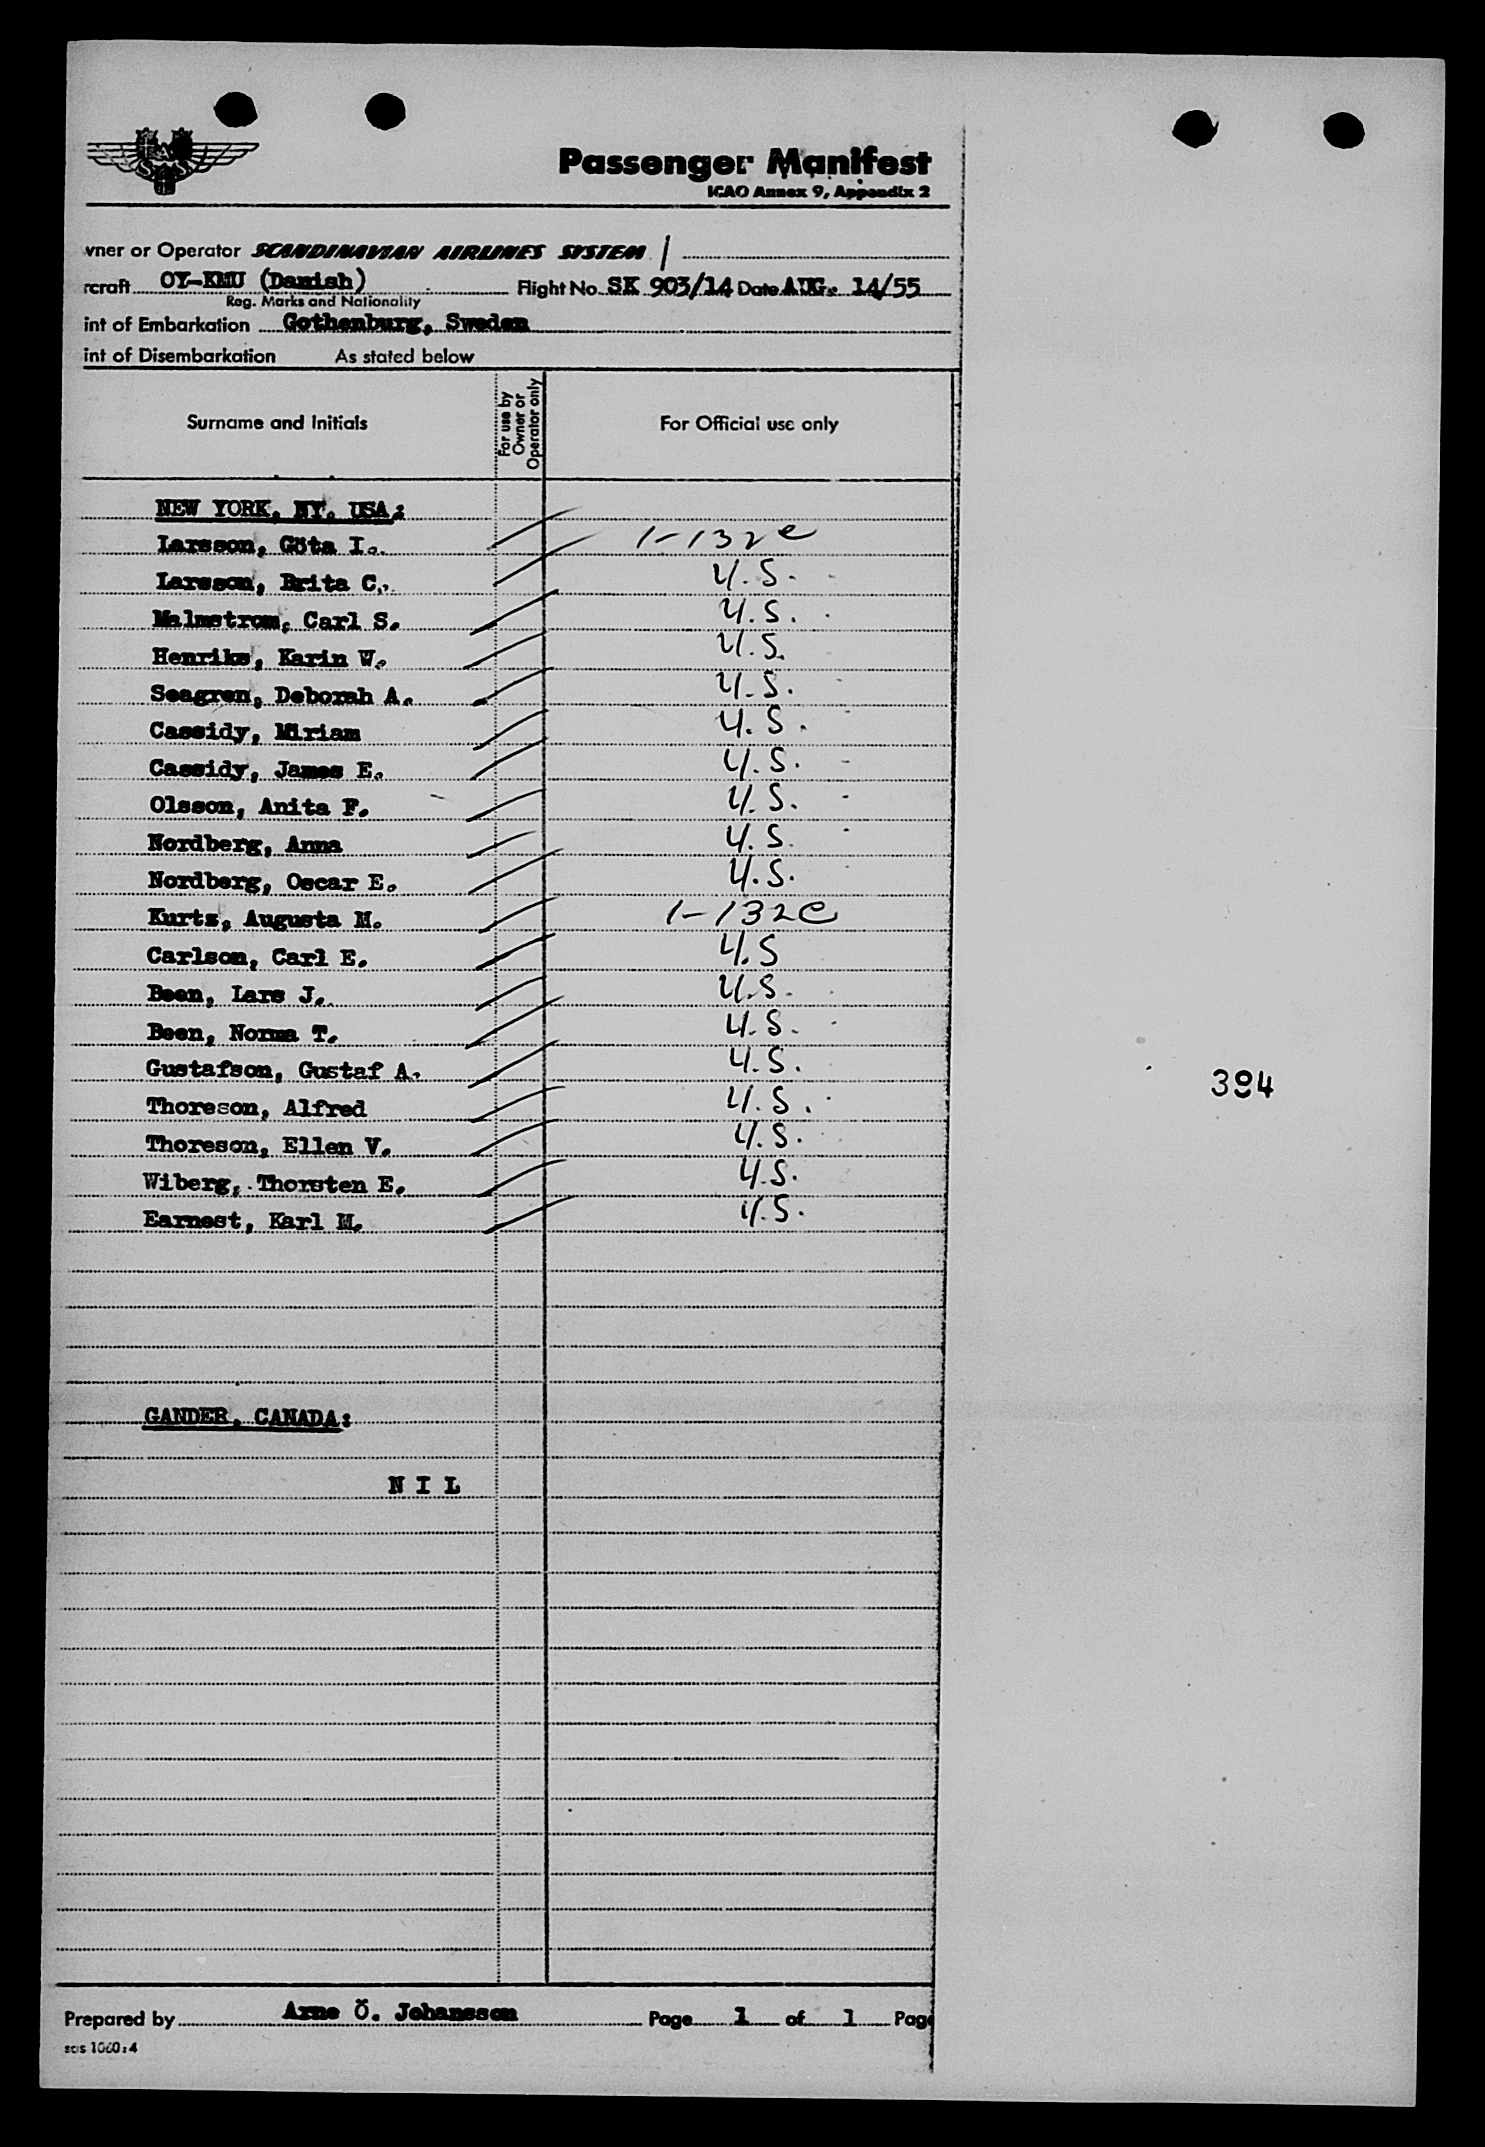 SAS
Passenger Manifest
ICAO Annex 9, Appendix 2
wner or Operator SCANDINAVIAN AIRLINES SYSTEM /
rcraft OY-KMU (Danish) Flight No. SK 903/14 Date AUG. 14/55
Reg. Marks and Nationality
int of Embarkation Gothenburg, Sweden
int of Disembarkation As stated below
Surname and Initials For use by Owner or Operator only For Official use only
NEW YORK, NY. USA:
Larsson, Göta I. 1-132e
Larsson, Brita C. U.S.
Malmstrom, Carl S. U.S.
Henriks, Karin W. U.S.
Seagren, Deborah A. U.S.
Cassidy, Miriam U.S.
Cassidy, James E. U.S.
Olsson, Anita F. U.S.
Nordberg, Anna U.S.
Nordberg, Oscar E. U.S.
Kurtz, Augusta M. 1-132e
Carlson, Carl E. U.S
Been, Lars J. U.S.
Been, Norma T. U.S.
Gustafson, Gustaf A. U.S.
Thoreson, Alfred U.S.
Thoreson, Ellen V. U.S.
Wiberg, Thorsten E. U.S.
Earnest, Karl M. U.S.
384
GANDER, CANADA:
N I L
Prepared by Arne Ö. Johansson Page 1 of 1 Page
sas 1060:4